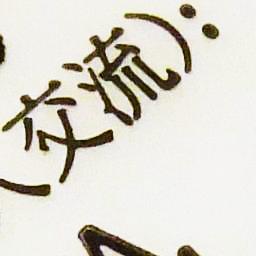 (交流):